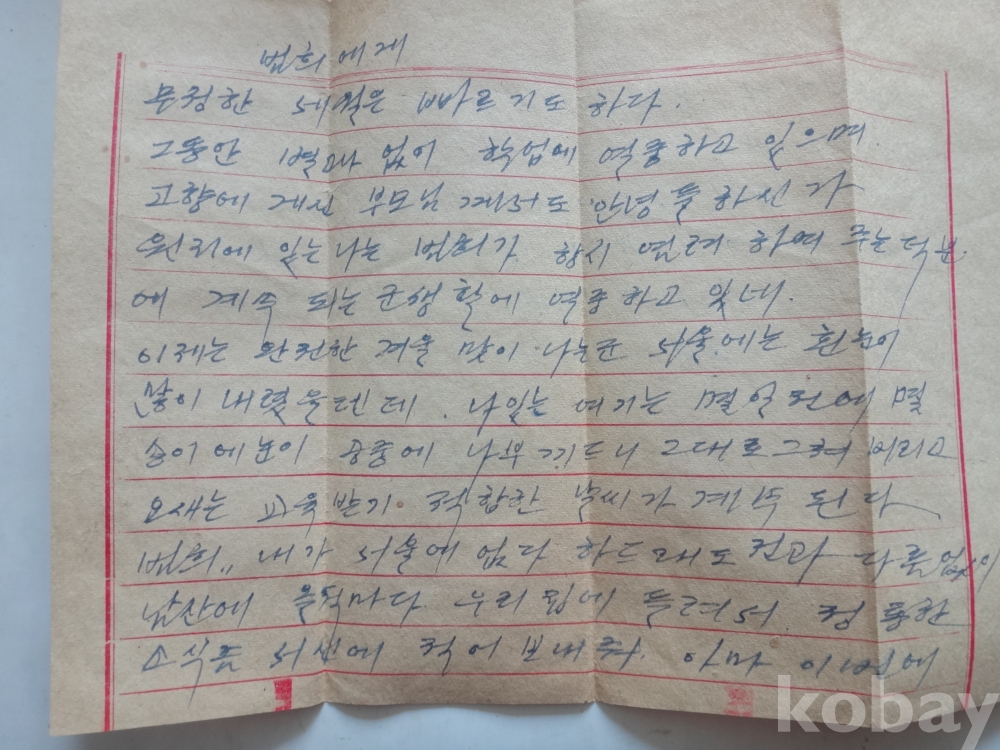 범희에게
무정한 세월은 빠르기도 하다.
그동안 별고 없이 학업에 열중하고 있으며
고향에 계신 부모님 께서도 안녕들 하신가
원리에 있는 나는 범희가 항시 염려 하여 주는 덕분
에 계속 되는 군생활에 열중하고 있네.
이제는 완전한 겨울 맞이 나는군 서울에는 흰눈이
많이 내렸을텐데. 나있는 여기는 몇일전에 몇
송이에 눈이 공중에 나부끼드니 그대로 그쳐 버리고
요새는 교육받기 적합한 날씨가 계속 된다
범희,, 내가 서울에 없다 하드래도 전과 다름없이
남산에 올적마다 우리집에 들려서 정통한
소식을 서신에 적어 보내줘. 아마 이번에
kobay